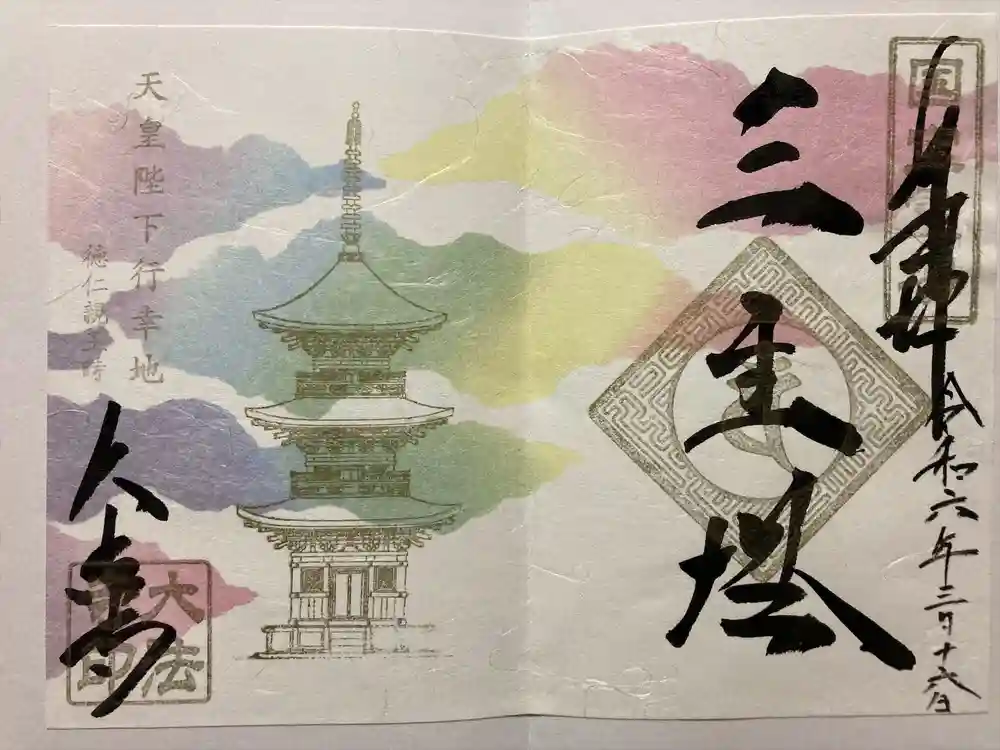 奉拝
令和六年三月十六日
三重塔
天皇陛下行幸地
徳仁親王時
大法寺印